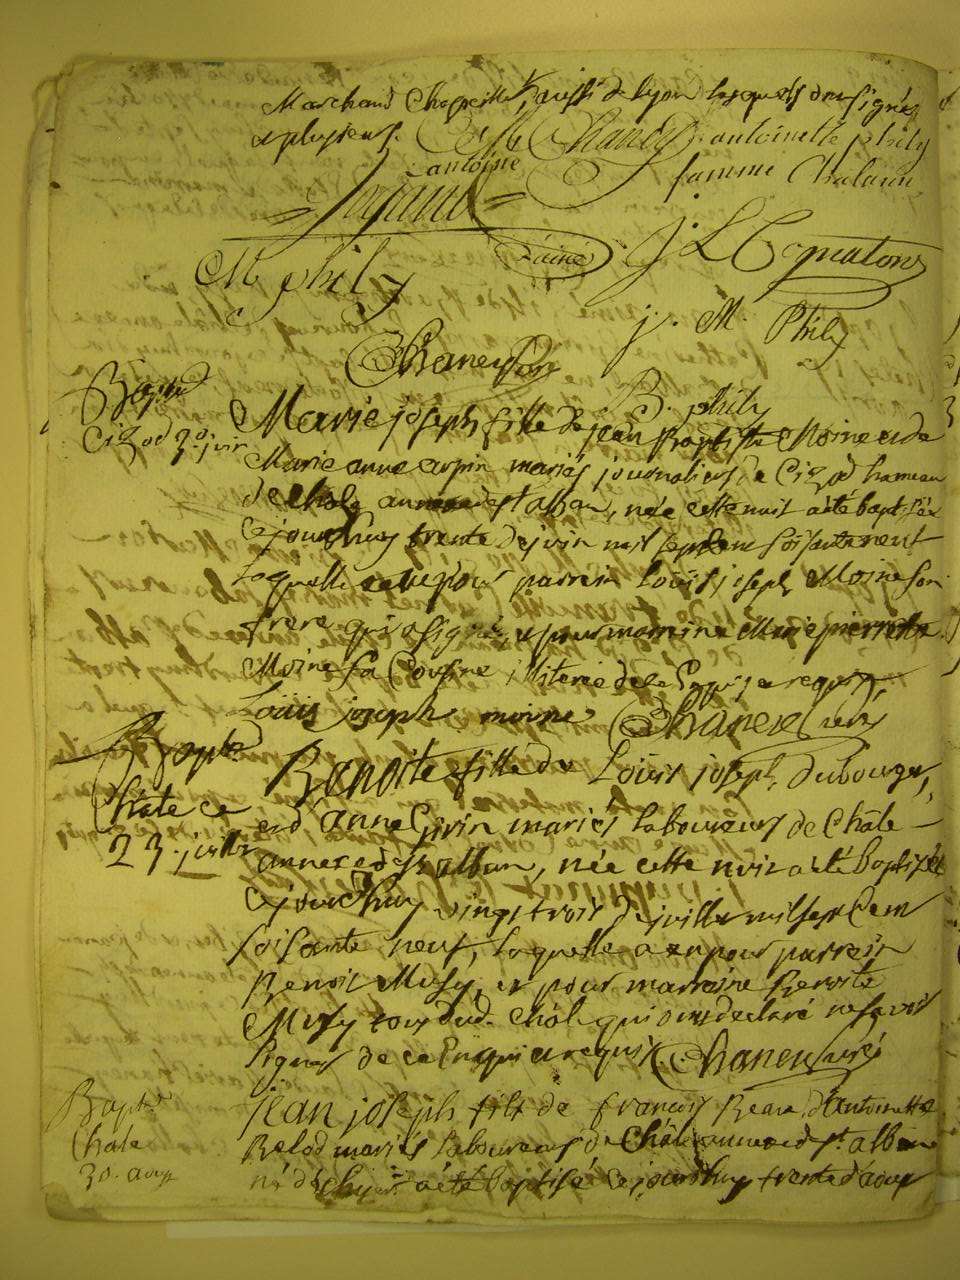 Marchand Chapellier aussi de lyon lesquels ont signés
et plusieurs.
antoinette phily
antoine
femme Chalann
l'ainé
M phily
J L Cognaton
j. M. Phily
Chaney
B. phily
Bapt
Cizod 30 juin
Marie joseph fille de jean Baptiste Moine et de
Marie anne carpin mariés journaliers de Cizod hameau
de Chole annexe de st alban, née cette nuit a été baptisée
ce jourdhuy trente de juin mil sept cent soisante neuf
laquelle a eu pour parrein Louis joseph Moine son
frere qui a signé, et pour marreine Marie pierrette
Moine sa Cousine illiterée de ce Enquise et requise,
Louis joseph moine Chanex curé
Bapt
Chale ce
23. juillet
Benoite fille de Louis joseph dubourget,
et d'anne Girin mariés laboureurs de Chale
annexe de st alban, née cette nuit a été baptisée
ce jourdhuy vingt trois de juillet mil sept Cent
soisante neuf, laquelle a eu pour parrein
Benoit Musy, et pour marreine Benoite
Musy tous dud. Chole qui ont declaré ne savoir
signer de ce Enquis et requis Chanex curé
Bapt
Chale
30. aout
jean joseph fils de francois Reava d'antoinette
Belod mariés laboureurs de Chale annexe de st. alban
né d'hyer a été baptisé ce jourdhuy trente d'aout